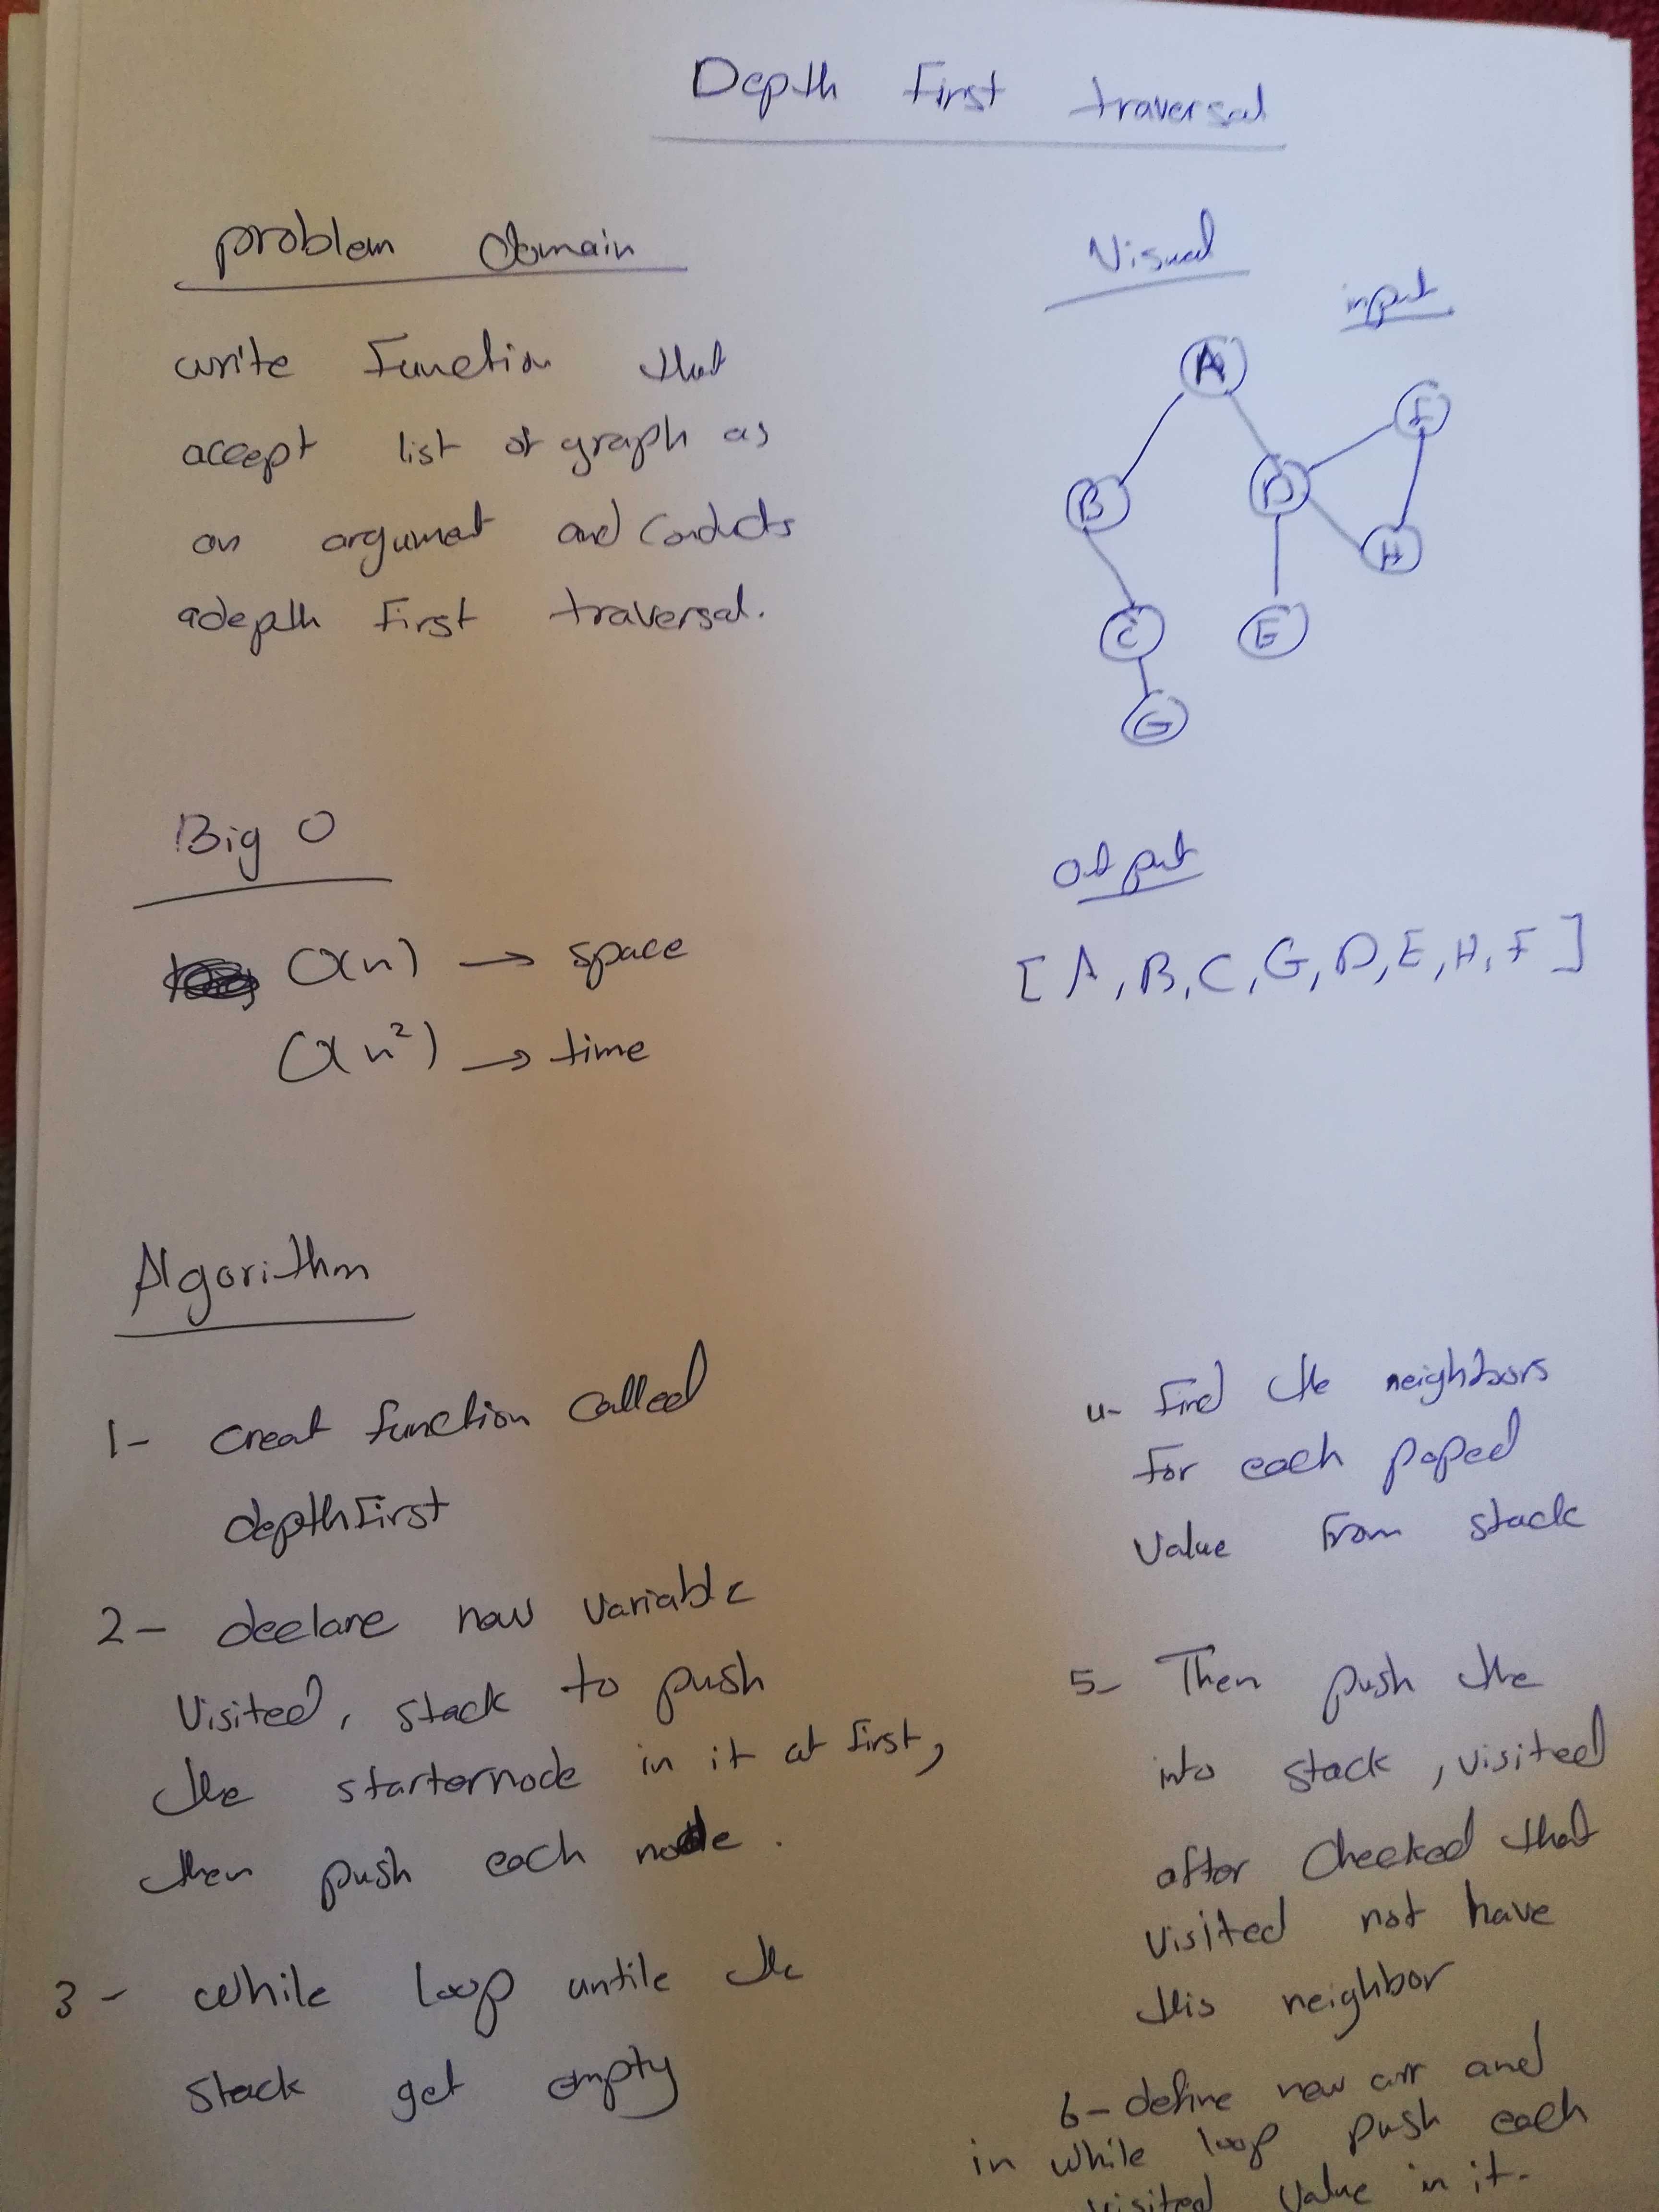 Depth First traversal
problem domain
write Function that
accept list of graph as
an argument and conducts
adepth First traversal.
Visual
input
A
F
B
D
H
C
E
G
Big O
O(n) → space
O(n²) → time
output
[ A, B, C, G, D, E, H, F ]
Algorithm
1- creat function called
depthFirst
2- declare new variable
Visited, stack to push
the starternode in it at first,
then push each node.
3- while loop untile the
stack get empty
4- Find the neighbors
For each poped
value From stack
5- Then push the
into stack, visited
after checked that
visited not have
this neighbor
6- define new arr and
in while loop push each
visited value in it.